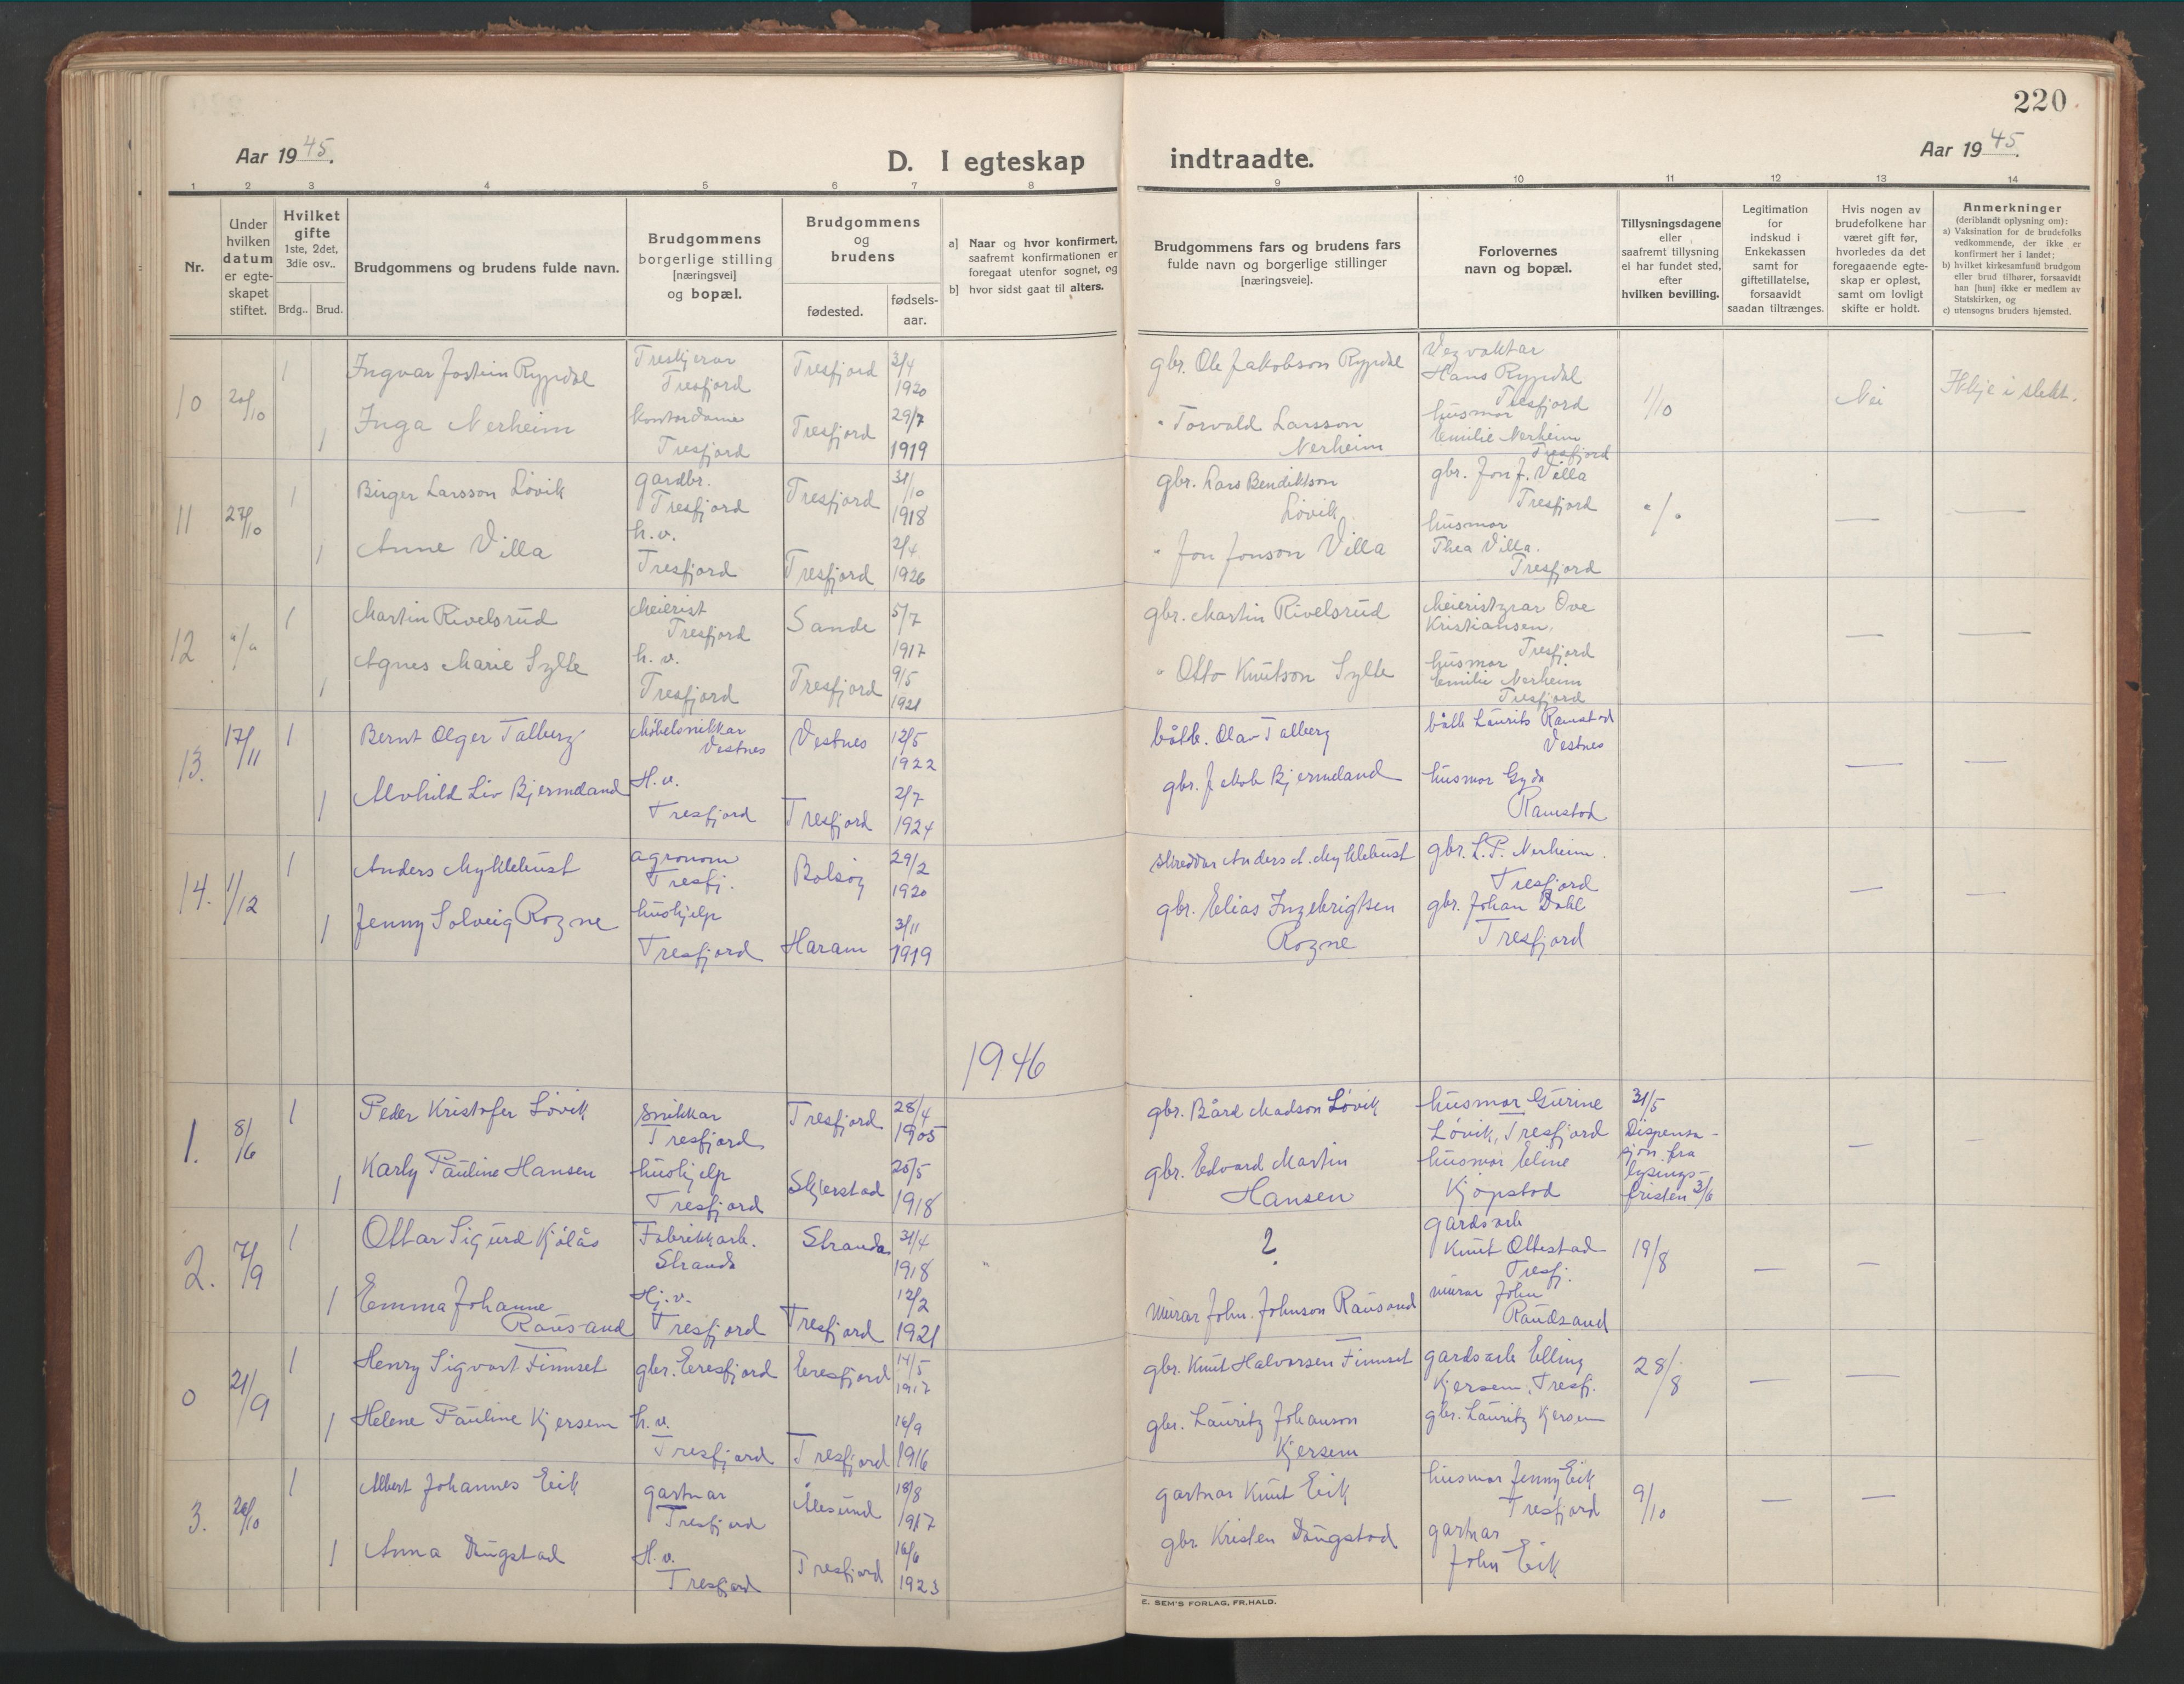 220
Aar 1945.
D. I egteskap
indtraadte.
Aar 1945.
1 2 3 4 5 6 7 8 9 10 11 12 13 14
Nr.
Under hvilken datum er egte-skapet stiftet.
Hvilket gifte 1ste, 2det, 3die osv..
Brdg.. Brud.
Brudgommens og brudens fulde navn.
Brudgommens borgerlige stilling [næringsvei] og bopæl.
Brudgommens og brudens
fødested.
fødsels-aar.
a] Naar og hvor konfirmert, saafremt konfirmationen er foregaat utenfor sognet, og
b] hvor sidst gaat til alters.
Brudgommens fars og brudens fars fulde navn og borgerlige stillinger [næringsveie].
Forlovernes navn og bopæl.
Tillysningsdagene eller saafremt tillysning ei har fundet sted, efter hvilken bevilling.
Legitimation for indskud i Enkekassen samt for giftetillatelse, forsaavidt saadan tiltrænges.
Hvis nogen av brudefolkene har været gift før, hvorledes da det foregaaende egte-skap er opløst, samt om lovligt skifte er holdt.
Anmerkninger
(deriblandt oplysning om):
a) Vaksination for de brudefolks vedkommende, der ikke er konfirmert her i landet;
b) hvilket kirkesamfund brudgom eller brud tilhører, forsaavidt han [hun] ikke er medlem av Statskirken, og
c) utensogns bruders hjemsted.
10 20/10 1 Ingvar Jostein Rypdal Treskjerar Tresfjord Tresfjord 3/4 1920 gbr. Ole Jakobson Rypdal Vegvaktar Hans Rypdal Tresfjord 1/10 Nei Ikkje i slekt.
1 Inga Nerheim kontordame Tresfjord Tresfjord 29/7 1919 " Torvald Larsson Nerheim husmor Emilie Nerheim Tresfjord
11 27/10 1 Birger Larsson Løvik gardbr. Tresfjord Tresfjord 31/10 1918 gbr. Lars Bendikson Løvik gbr. Jon J. Villa Tresfjord "/" — —
1 Anne Villa h.v. Tresfjord Tresfjord 2/4 1926 " Jon Jonson Villa husmor Thea Villa. Tresfjord
12 "/" 1 Martin Rivelsrud Meierist Tresfjord Sande 5/7 1917 gbr. Martin Rivelsrud Meieristyrar Ove Kristiansen, Tresfjord — —
1 Agnes Marie Sylte h.v. Tresfjord Tresfjord 9/5 1921 " Otto Knutson Sylte husmor Emilie Nerheim Tresfjord
13. 17/11 1 Bernt Olger Talberg Møbelsnikkar Vestnes Vestnes 12/5 1922 båtb. Olav Talberg båtb Laurits Ramstad Vestnes — —
1 Alvhild Liv Bjermeland H.v. Tresfjord Tresfjord 2/7 1924 gbr. Jakob Bjermeland husmor Gyda Ramstad
14. 1/12 1 Anders Myklebust agronom Tresfj. Bolsøy 29/2 1920 skreddar Anders A. Myklebust gbr. L.P. Nerheim. Tresfjord — —
1 Jenny Solveig Rogne hushjelp Tresfjord Haram 3/11 1919 gbr. Elias Ingebrigtsen Rogne gbr. Johan Dahl Tresfjord
1946
1. 8/6 1 Peder Kristofer Løvik snikkar Tresfjord Tresfjord 28/4 1905 gbr. Bård Madson Løvik husmor Gurine Løvik, Tresfjord 31/5 Dispensa-sjon fra lysings-fristen 3/6 — —
1 Karly Pauline Hansen hushjelp Tresfjord Skjerstad 25/5 1918 gbr. Edvard Martin Hansen husmor Eline Kjøpstad
2. 7/9 1 Ottar Sigurd Kjølås Fabrikkarb. Stranda Stranda 31/4 1918 " ? gardsarb Knut Ottestad Tresfj. 19/8 — —
1 Emma Johanne Rausand Hj.v. Tresfjord Tresfjord 12/2 1921 murar John. Johnson Rausand murar John Raudsand
0 21/9 1 Henry Sigvart Finnset gbr. Eresfjord Eresfjord 14/5 1917 gbr. Knut Halvorsen Finnset gardsarb Elling Kjersem, Tresfj. 28/8 — —
1 Helene Pauline Kjersem h.v. Tresfjord Tresfjord 16/9 1916 gbr. Lauritz Johanson Kjersem gbr. Lauritz Kjersem
3. 26/10 1 Albert Johannes Eik gartnar Tresfjord Ålesund 18/8 1917 gartnar Knut Eik husmor Jenny Eik Tresfjord 9/10 — —
1 Anna Daugstad H.v. Tresfjord Tresfjord 16/6 1923 gbr. Kristen Daugstad gartnar John Eik
E. SEM'S FORLAG, FR.HALD.